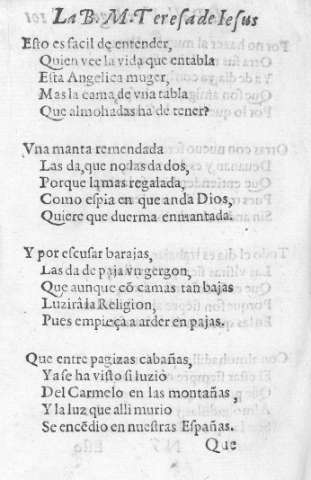 La B. M. Teresa de Iesus
Esto es facil de entender,
Quien vee la vida que entabla
Esta Angelica muger,
Mas la cama de vna tabla
Que almohadas ha de tener?
Vna manta remendada
Las da, que no las da dos,
Porque la mas regalada,
Como espia en que anda Dios,
Quiere que duerma enmantada.
Y por escusar barajas,
Las da de paja vn gergon,
Que aunque cõ camas tan bajas
Luzirà la Religion,
Pues empieçà a arder en pajas.
Que entre pagizas cabañas,
Ya se ha visto si luziò
Del Carmelo en las montañas,
Y la luz que alli murio
Se encẽdio en nuestras Españas.
Que